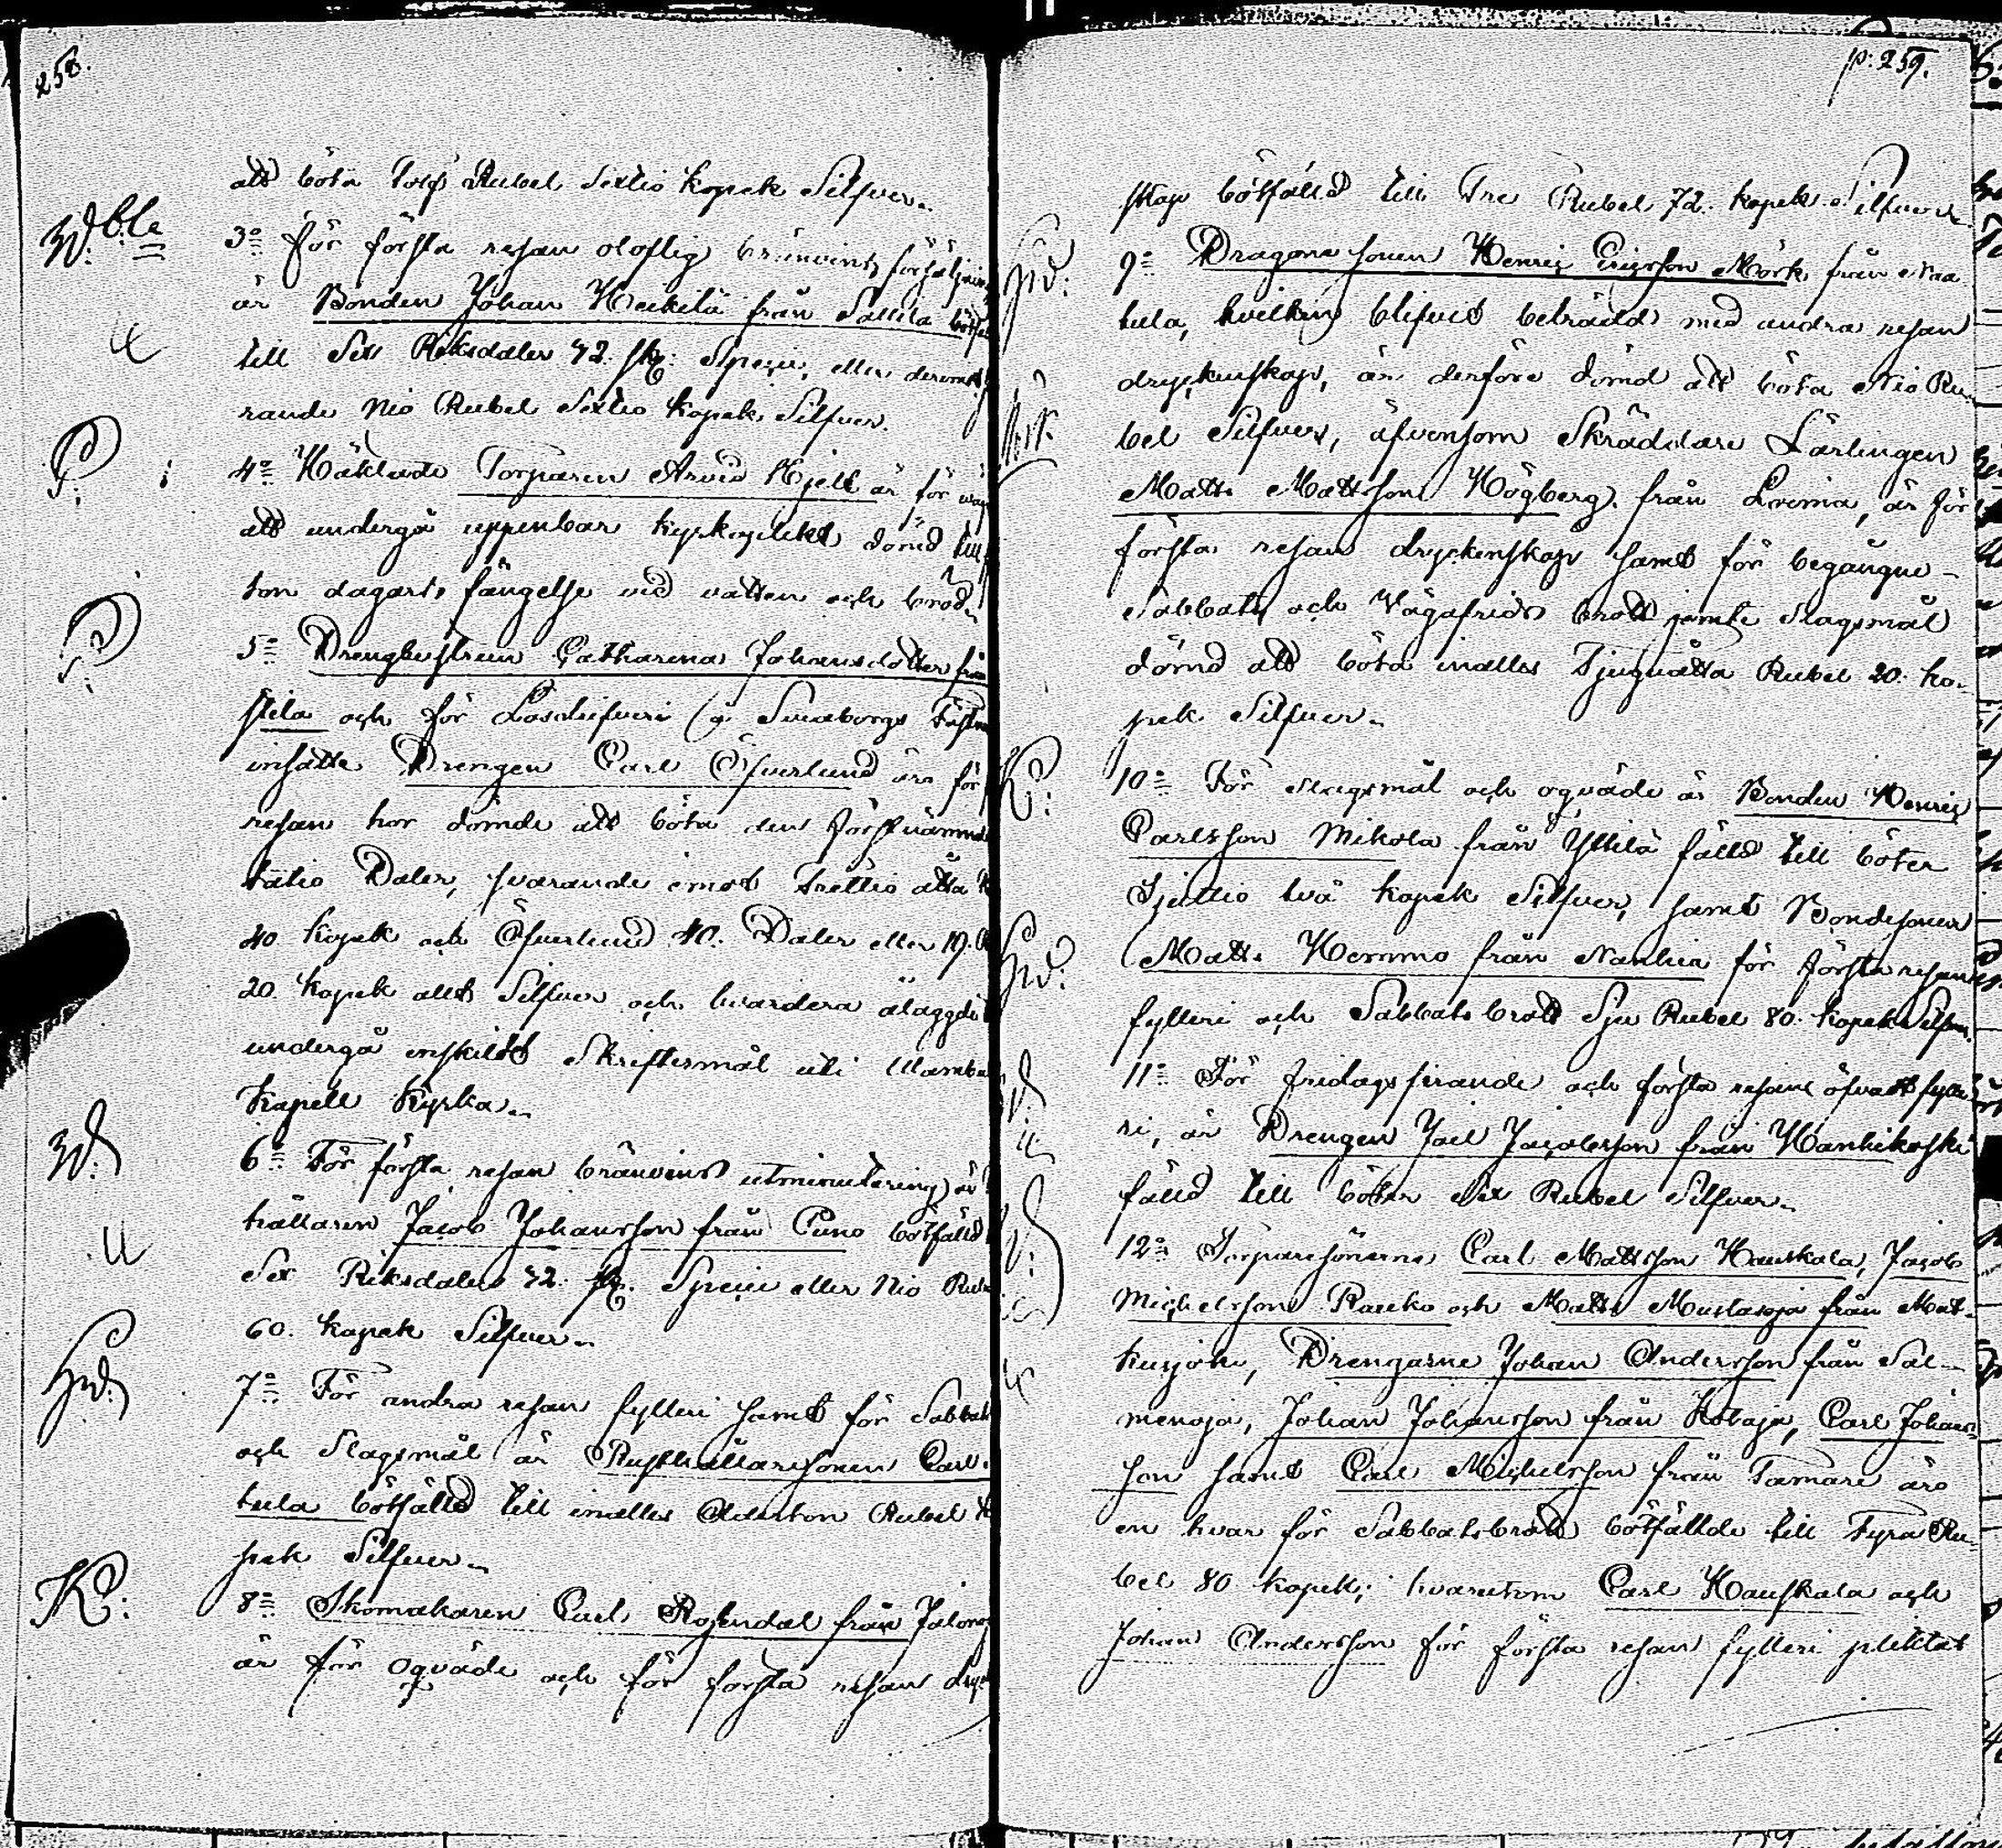 258.
att böta Tolf Rubel Sextio kopek Silfver.
3o För första resan oloflig bränvins försäljning
är Bonden Johan Heikilä från Sallila bötfäl
till Sex Riksdaler 42. sk: Specie, eller deremot
rande Nio Rubel Sextio kopek Silfver.
4o Häktade Torparen Arvid Kjell är för
att undergå uppenbar kyrkoplikt dömd till
ton dagars fängelse vid vatten och bröd.
5o Drenghustrun Catharina Johansdotter från
stila och för Lösdrifveri å Sveaborgs Fästn
insatte Drengen Carl Öfverlund äro för
resan hor dömde att böta den förstnämnde
tatio Daler, svarande emot trettio åtta R
40 kopek och Öfverlund 40. Daler eller 19. R
20. kopek allt Silfver och hvardera ålaggde
undergå enskildt Skriftermål uti
Kapell Kyrka.
6o För första resan bränvins utminutering är
hållaren Jacob Johansson från Puno bötfälld
Sex Riksdaler 42. sk: Specie eller Nio Rube
60. kopek Silfver.
7o För andra resan fylleri samt för Sabbat
och Slagsmål är Rusthållaresonen Carl
tula bötfälld till inalles Aderton Rubel
pek Silfver.
8o Skomakaren Carl Rosendal från
är för Oqväde och för första resan dryc
p: 259.
skap bötfälld till Tre Rubel 72. kopek Silfver.
9o Dragone sonen Henric Ericsson Mörk från Naa
tula, hvilken blifvit beträdd med andra resan
dryckenskap, är derföre dömd att böta Nio Ru
bel Silfver, äfvensom Skräddare Lärlingen
Matts Mattsson Högberg från Loima, är för
första resan dryckenskap samt för begångne
Sabbats och Vägafrids brott jemte Slagsmål
dömd att böta inalles Tjuguåtta Rubel 20. ko
pek Silfver.
10o För Slagsmål och oqväde är Bonden Henric
Carlsson Mikola från Yttilä fälld till böter
Sjuttio två kopek Silfver, samt Bondesonen
Matts Hemmo från Nanhia för första resan
fylleri och Sabbatsbrott Sju Rubel 80. kopek Silfver.
11o För fridags firande och första resans öfvadt fylle
ri, är Drengen Joel Jacobsson från Hanhikoski
fälld till böter Sex Rubel Silfver.
12o Torparesönerne Carl Mattsson Hauskala, Jacob
Michelsson Rauko och Matts Mustaoja från Mat-
kusjoki, Drengarne Johan Andersson från Sal-
menoja, Johan Johansson från Köbaja, Carl Johans-
son samt Carl Michelsson från Tamare äro
en hvar för Sabbatsbrott bötfällde till Fyra Ru-
bel 80 kopek; hvarutom Carl Hauskala och
Johan Andersson för första resan fylleri pliktat